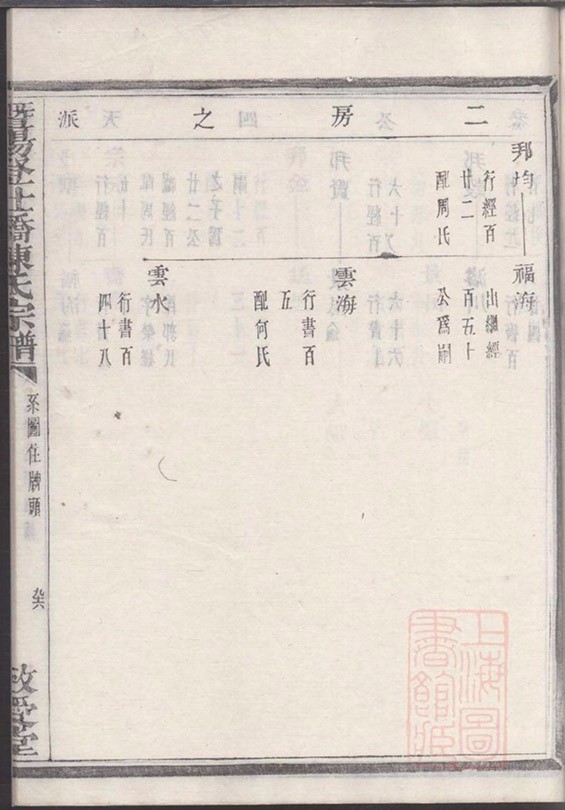 二房之派
邦均
行經百
廿二
配周氏
福海
出繼經
百五十
公爲嗣
雲海
行書百
五
配何氏
雲水
行書百
四十八
陳氏宗譜
系圖住牌頭
敦睦堂
上海圖書館藏